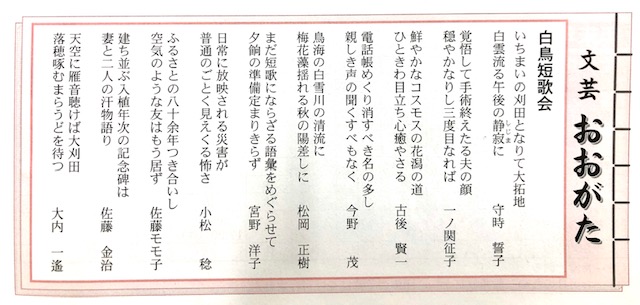 文芸 おおがた
白鳥短歌会
いちまいの刈田となりて大拓地
白雲流る午後の静寂に
しじま
守時 誓子
覚悟して手術終えたる夫の顔
穏やかなりし三度目なれば
一ノ関征子
鮮やかなコスモスの花潟の道
ひときわ目立ち心癒やさる
古後 賢一
電話帳めくり消すべき名の多し
親しき声の聞くすべもなく
今野 茂
鳥海の白雪川の清流に
梅花藻揺れる秋の陽差しに
松岡 正樹
まだ短歌にならざる語彙をめぐらせて
夕餉の準備定まりきらず
宮野 洋子
日常に放映される災害が
普通のごとく見えくる怖さ
小松 稔
ふるさとの八十余年つき合いし
空気のような友はもう居ず
佐藤モモ子
建ち並ぶ入植年次の記念碑は
妻と二人の汗物語り
佐藤 金治
天空に雁音聴けば大刈田
落穂啄むまらうどを待つ
大内 一遙